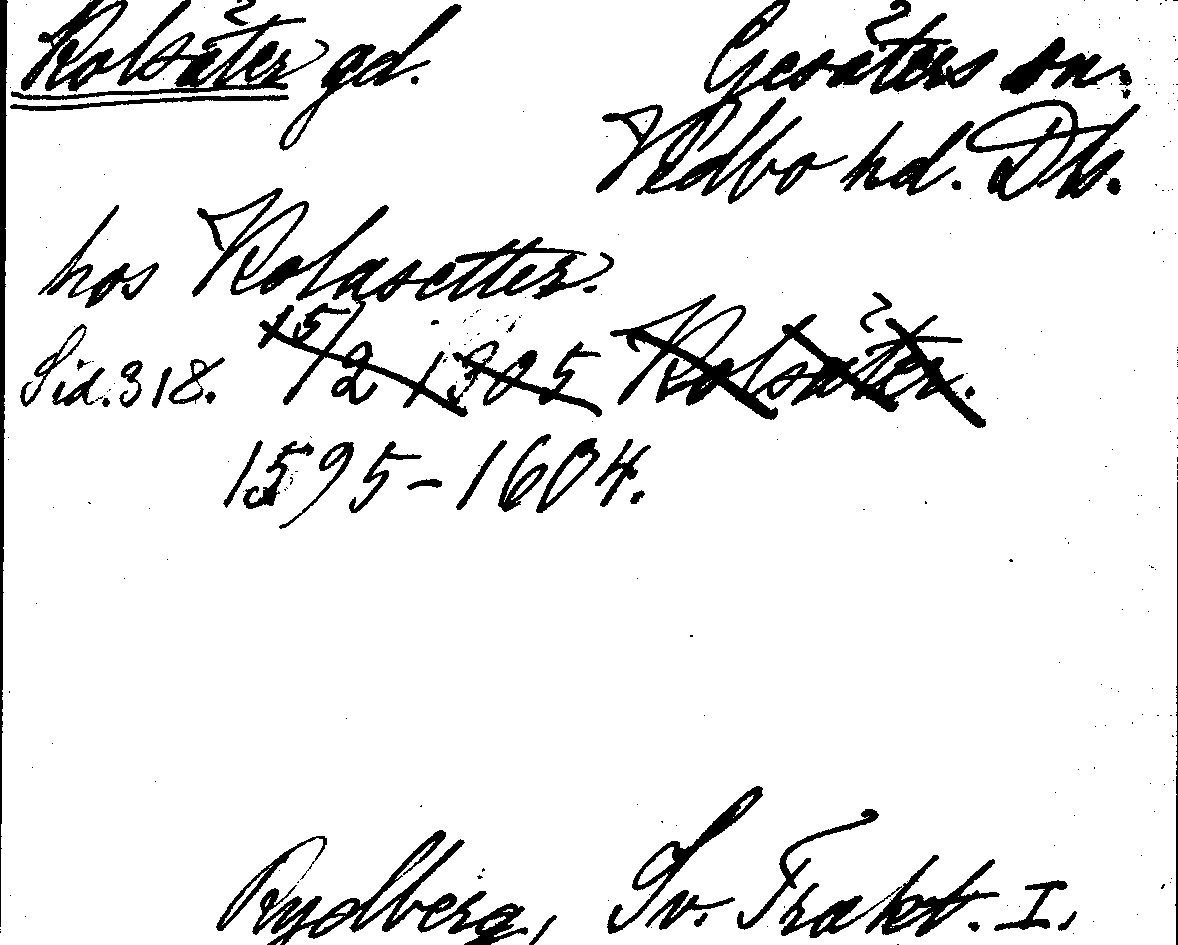 Kolsäter gd. Gesäters sn.
Vedbo hd. Dls.
hos Kolasetter.
Sid. 318. 15/2 1305 Kolsäter.
1595-1604.
Rydberg, Sv. Trakt. I,